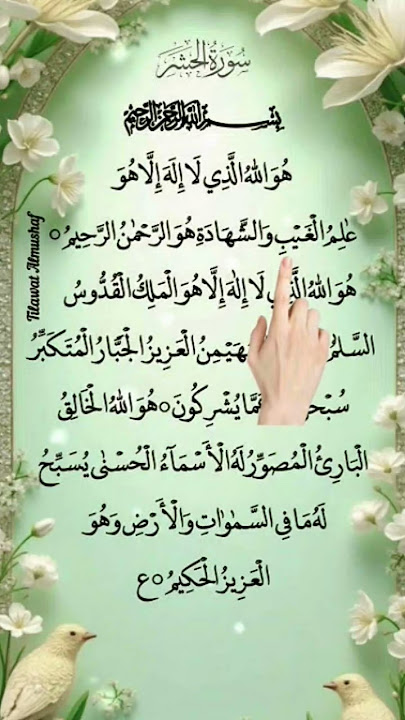 سُورَةُ الْحَشْرِ
بِسْمِ اللهِ الرَّحْمٰنِ الرَّحِيْمِ
هُوَ اللهُ الَّذِي لَا إِلٰهَ إِلَّا هُوَ
عٰلِمُ الْغَيْبِ وَالشَّهَادَةِ هُوَ الرَّحْمٰنُ الرَّحِيْمُ ○
هُوَ اللهُ لَا إِلٰهَ إِلَّا هُوَ الْمَلِكُ الْقُدُّوسُ
الْعَزِيزُ الْجَبَّارُ الْمُتَكَبِّرُ
يُشْرِكُونَ ○ هُوَ اللهُ الْخَالِقُ
الْبَارِئُ الْمُصَوِّرُ لَهُ الْأَسْمَآءُ الْحُسْنٰى يُسَبِّحُ
لَهُ مَا فِي السَّمٰوَاتِ وَالْأَرْضِ وَهُوَ
الْعَزِيزُ الْحَكِيمُ ○ ع
Tilawat Almushaf